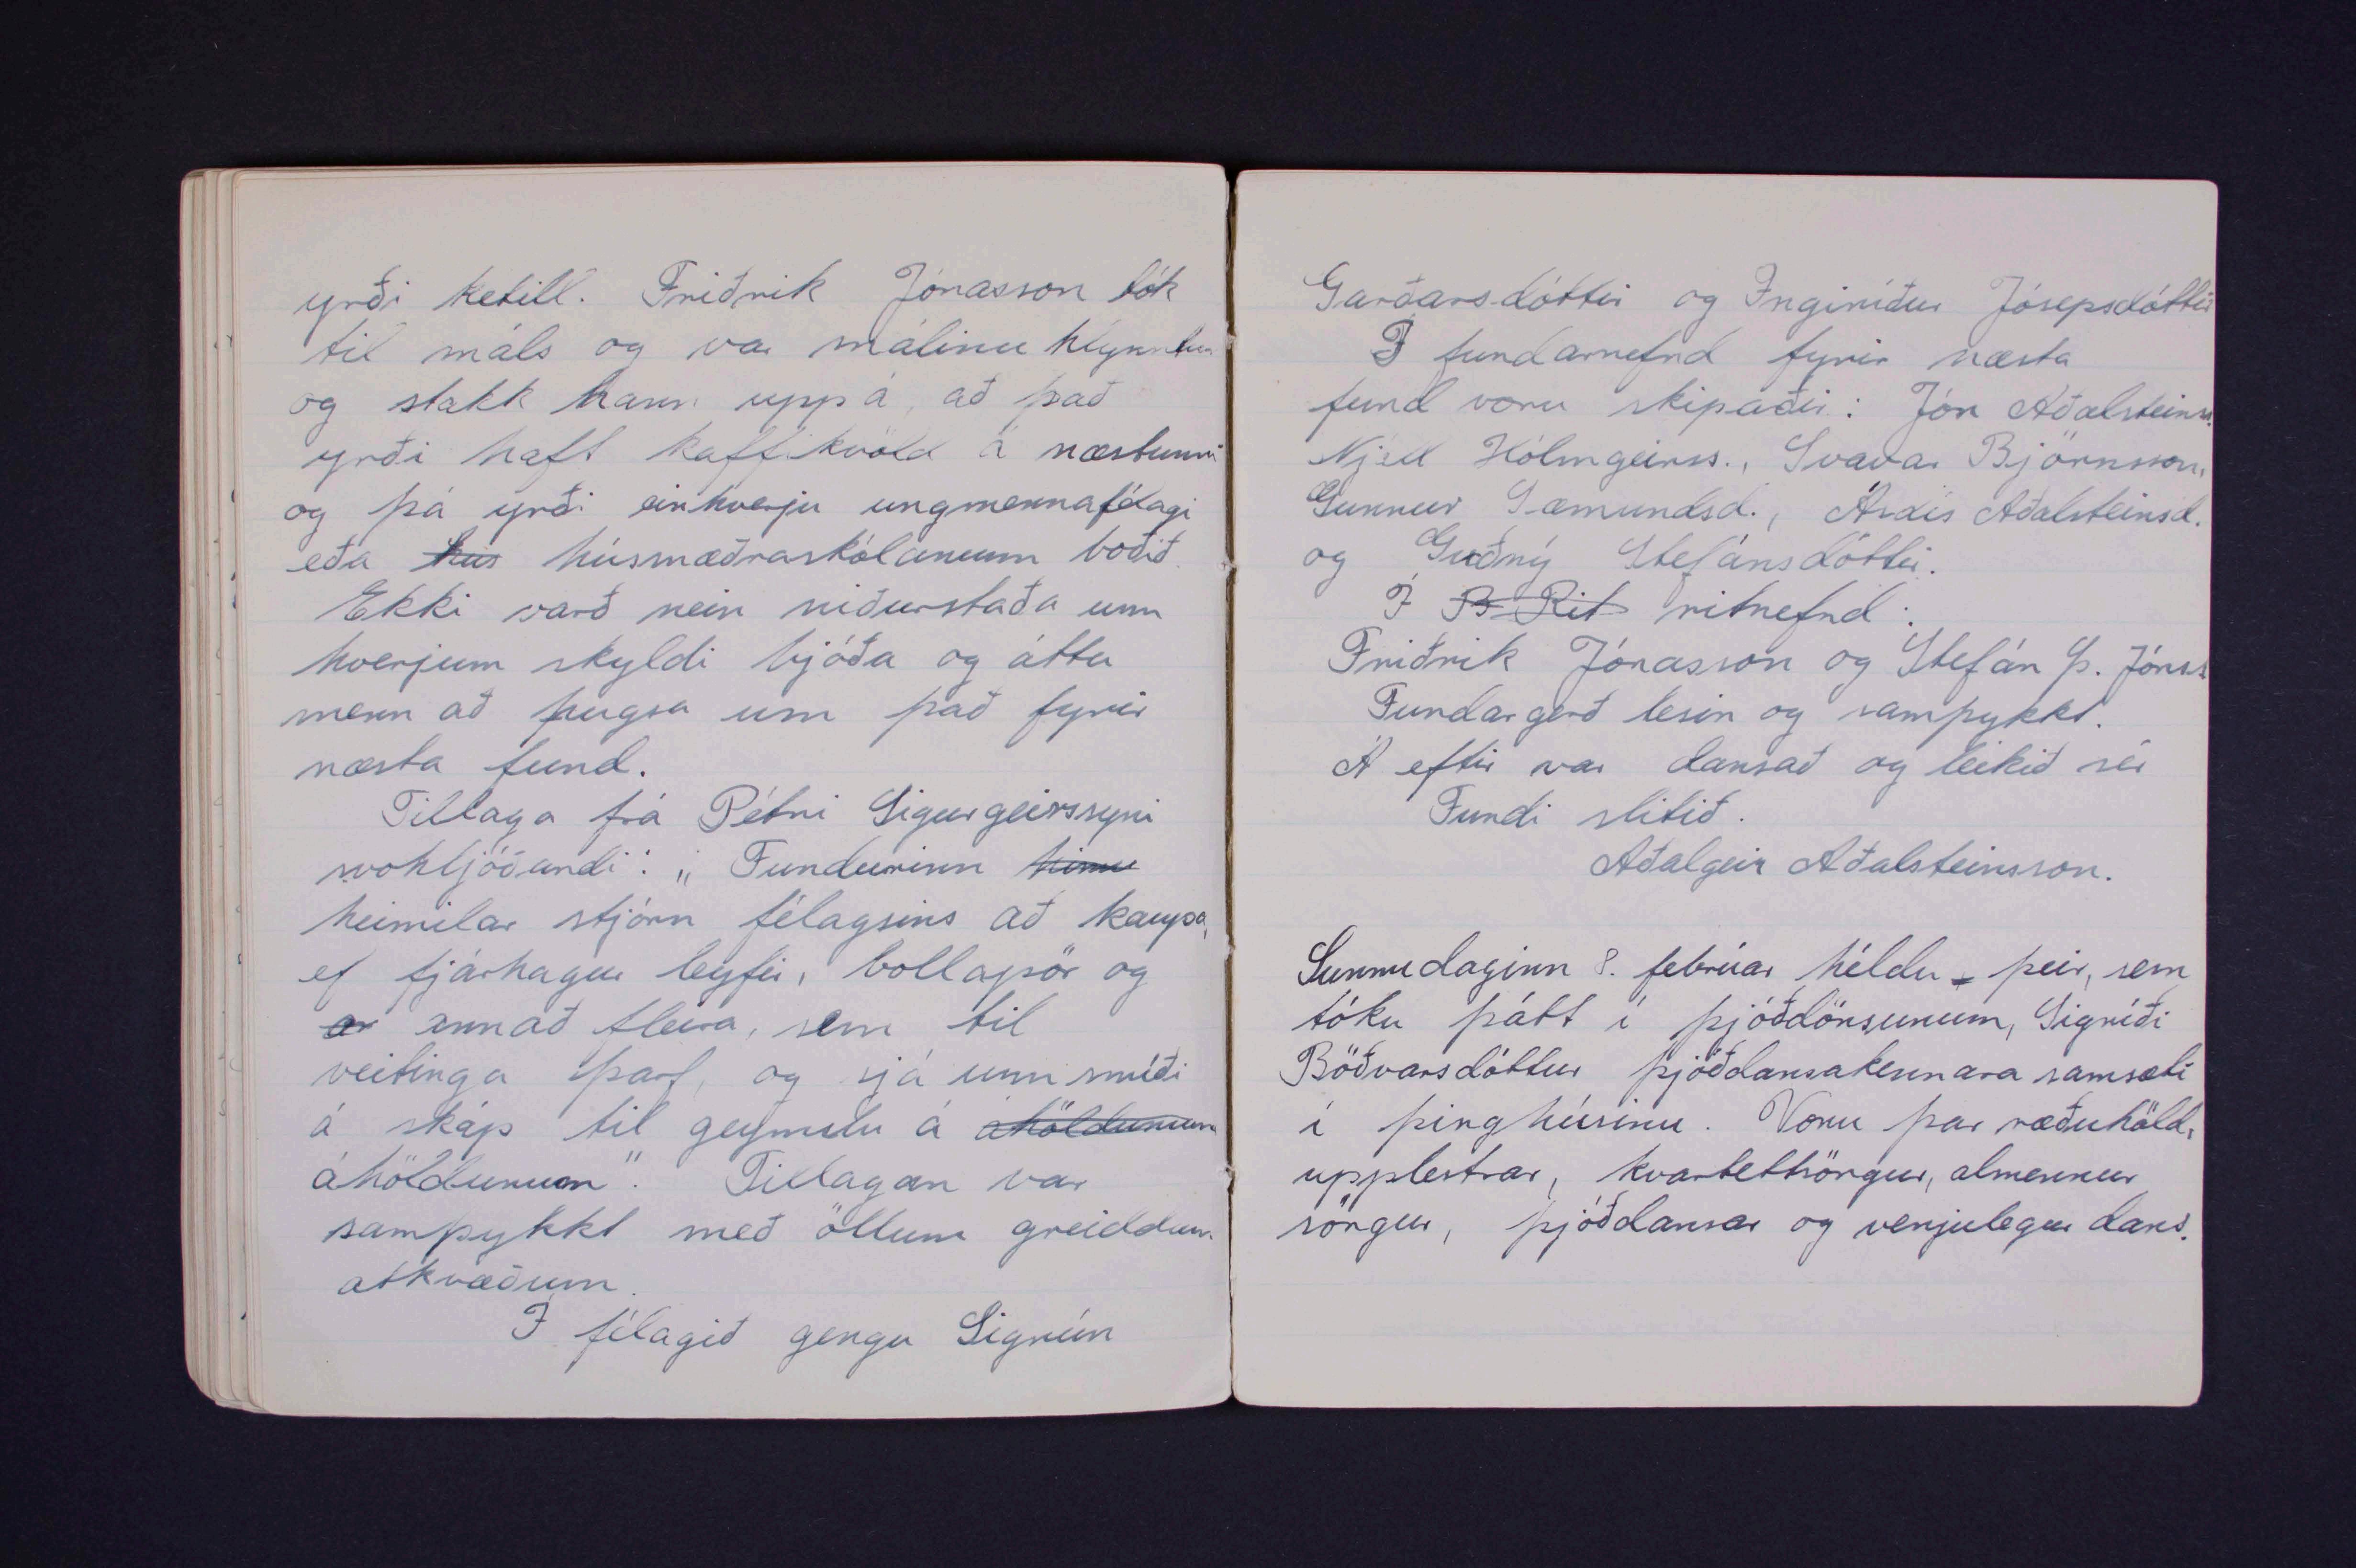 yrði ketill. Friðrik Jónasson tók
til máls og var málinu hlynntur
og stakk hann uppá, að það
yrði haft kaffikvöld á næstunni
og þá yrði einhverju ungmennafélagi
eða hús húsmæðraskólanum boðið.
Ekki varð nein niðurstaða um
hverjum skyldi bjóða og áttu
menn að hugsa um það fyrir
næsta fund.
Tillaga frá Pétri Sigurgeirssyni
svohljóðandi: „Fundurinn
heimilar stjórn félagsins að kaupa,
ef fjárhagur leyfir, bollapör og
ar annað fleira, sem til
veitinga þarf, og sjá um smíði
á skáp til geymslu á áhöldunum
áhöldunum". Tillagan var
samþykkt með öllum greiddum
atkvæðum.
Í félagið gengu Sigrún
Garðarsdóttir og Ingiríður Jósepsdóttir
Í fundarnefnd fyrir næsta
fund voru skipaðir: Jón Aðalsteinss.
Njáll Hólmgeirss., Svavar Björnsson,
Gunnur Sæmundsd., Ásdís Aðalsteinsd.
og Guðný Stefánsdóttir.
Í B Rit ritnefnd:
Friðrik Jónasson og Stefán Þ. Jónss
Fundargerð lesin og samþykkt.
Á eftir var dansað og leikið sér
Fundi slitið.
Aðalgeir Aðalsteinsson.
Sunnudaginn 8. febrúar héldu þeir, sem
tóku þátt í þjóðdönsunum, Sigríði
Böðvarsdóttur þjóðdansakennara samsæti
í þinghúsinu. Voru þar ræðuhöld,
upplestrar, kvartettsöngur, almennur
söngur, þjóðdansar og venjulegur dans.